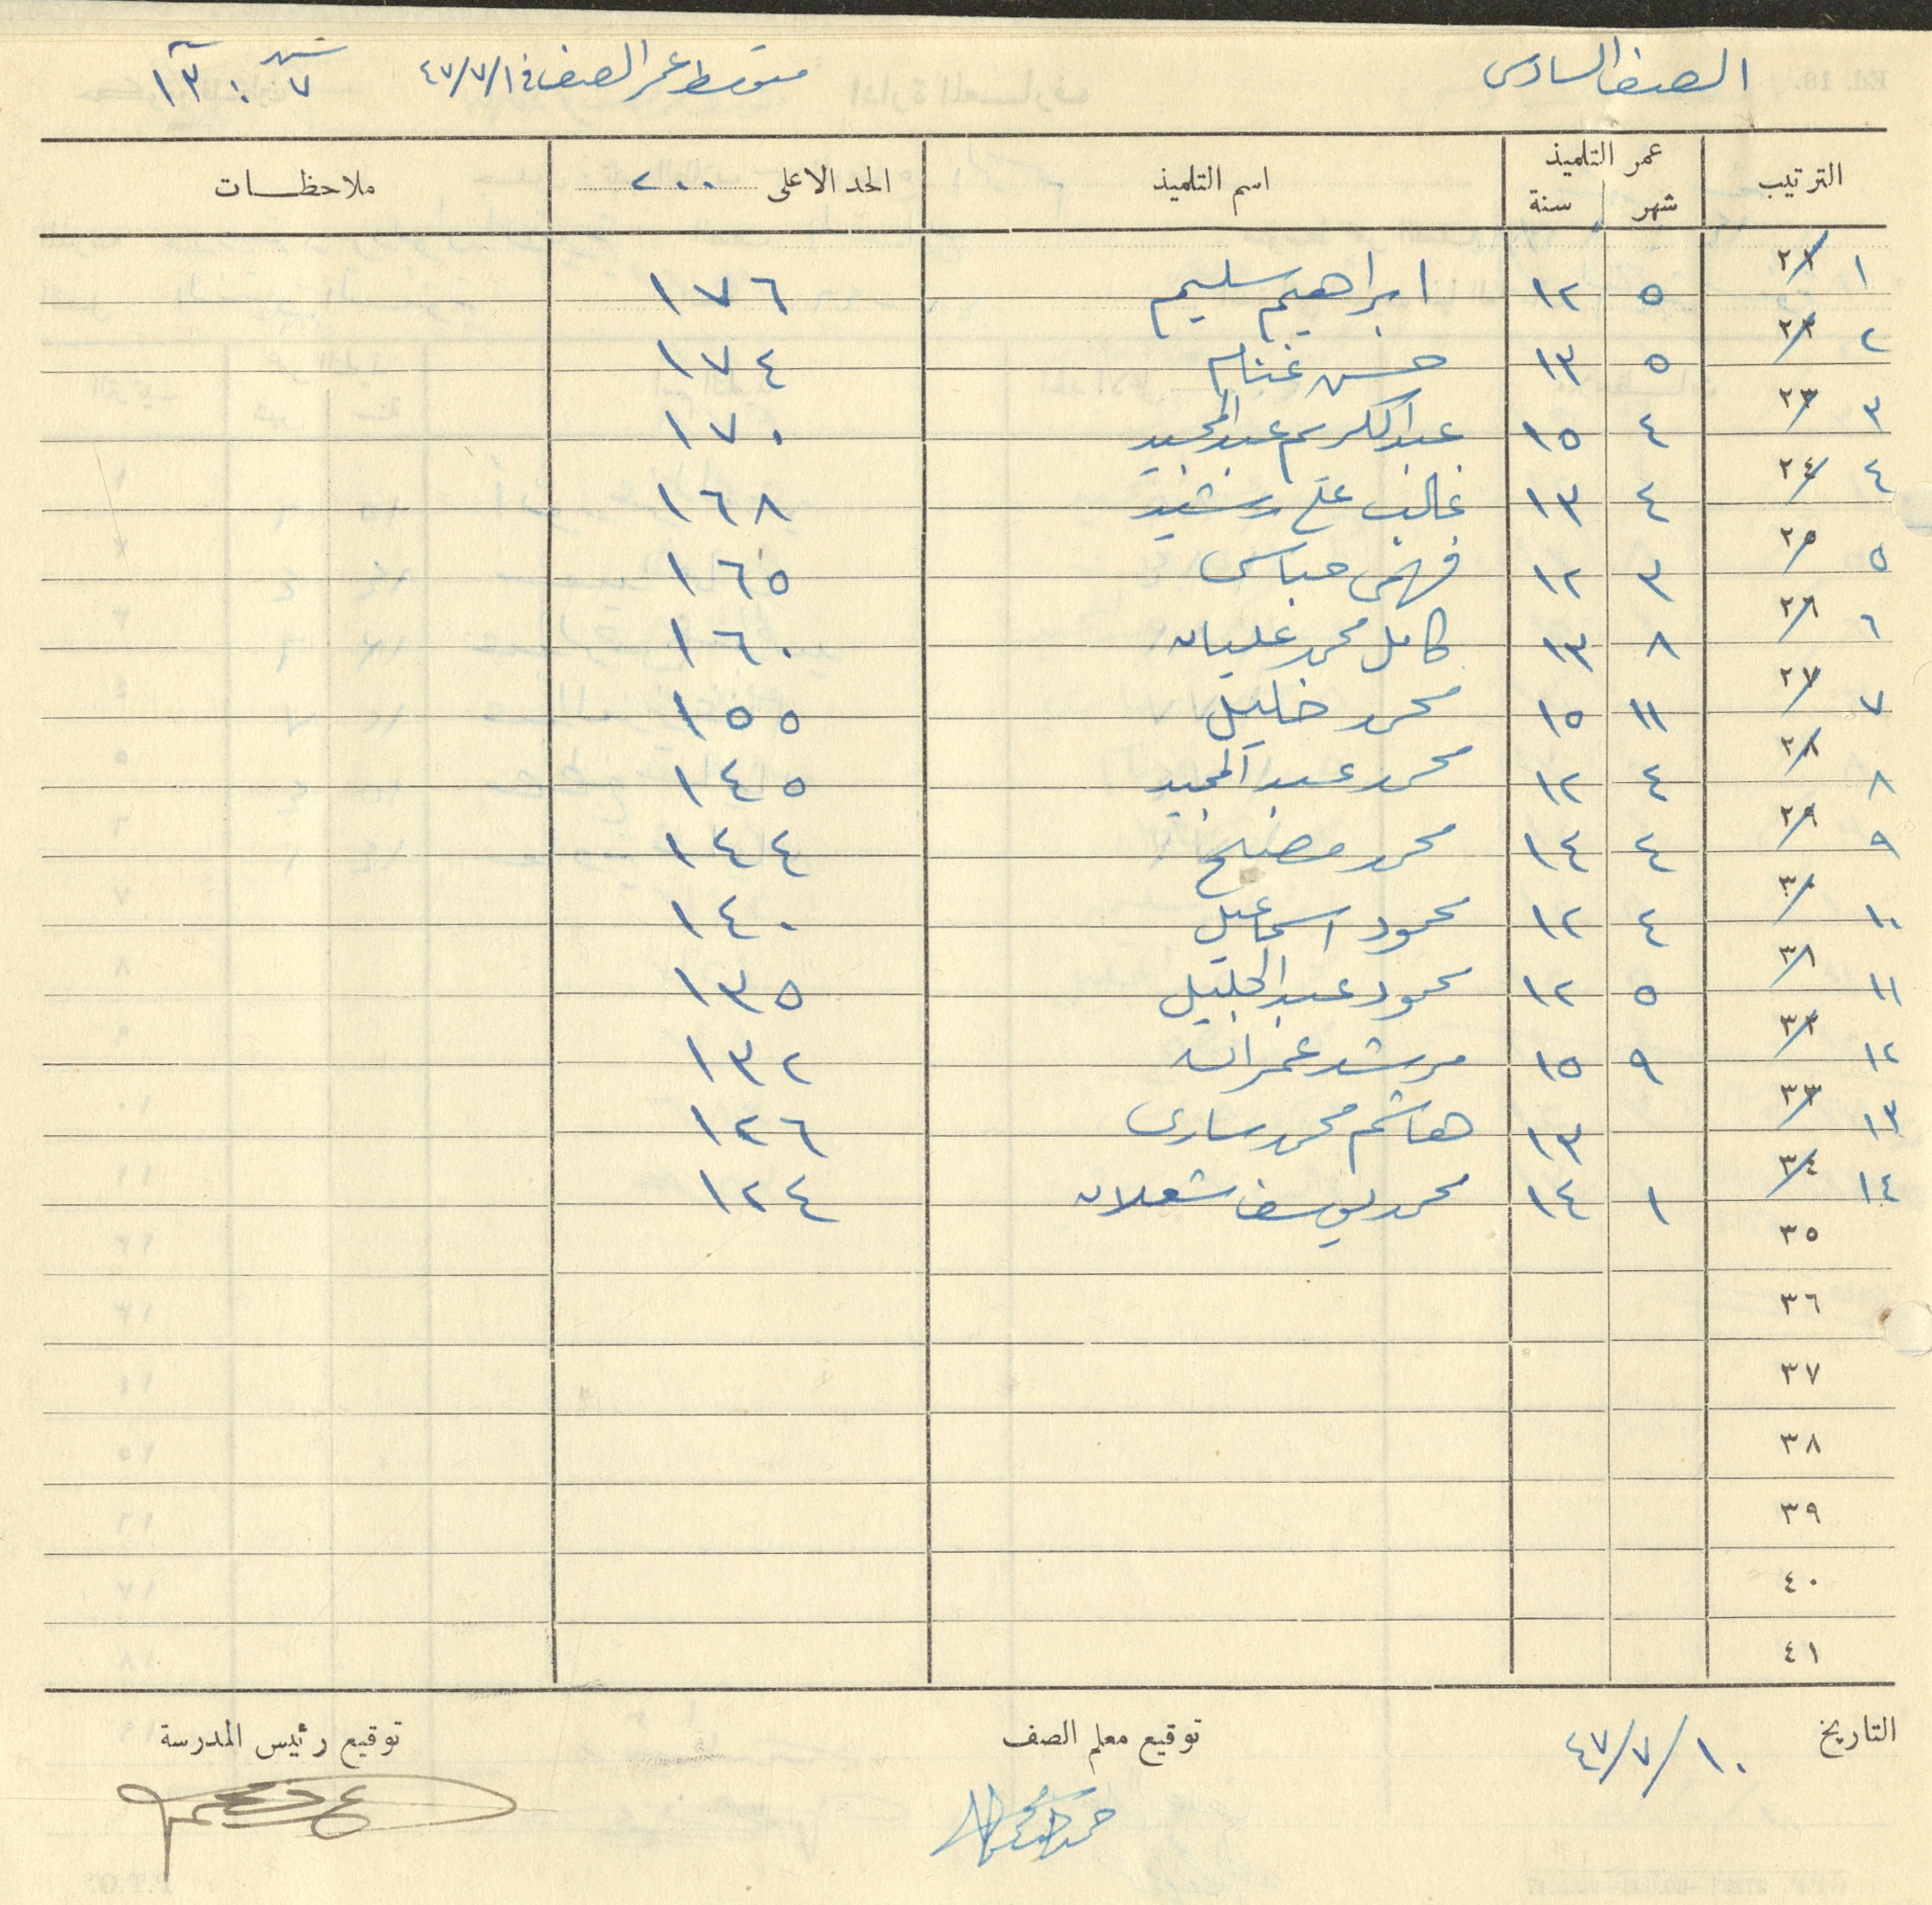 الصف السادس متوسط عمر الصف في ١/٧/٤٧ شهر ٧ سنة ١٣
الترتيب عمر التلميذ شهر سنة اسم التلميذ الحد الاعلى ٢٠٠ ملاحظات
١ ٢١ ٥ ١٢ ابراهيم سليم ١٧٦
٢ ٢٢ ٥ ١٣ حسن غنام ١٧٤
٣ ٢٣ ٤ ١٥ عبد الكريم عبد المجيد ١٧٠
٤ ٢٤ ٤ ١٣ غالب علي رشيد ١٦٨
٥ ٢٥ ٣ ١٢ فهمي عباس ١٦٥
٦ ٢٦ ٨ ١٣ كامل محمد عليان ١٦٠
٧ ٢٧ ١١ ١٥ محمد خليل ١٥٥
٨ ٢٨ ٤ ١٢ محمد عبد المجيد ١٤٥
٩ ٢٩ ٤ ١٤ محمد مصلح ١٤٤
١٠ ٣٠ ٤ ١٢ محمود اسماعيل ١٤٠
١١ ٣١ ٥ ١٢ محمود عبد الجليل ١٣٥
١٢ ٣٢ ٩ ١٥ مرشد عمران ١٣٢
١٣ ٣٣ ١٣ هاشم محمد ساري ١٢٦
١٤ ٣٤ ١ ١٤ محمد يوسف شعلان ١٢٤
٣٥
٣٦
٣٧
٣٨
٣٩
٤٠
٤١
التاريخ ١٠/٧/٤٧ توقيع معلم الصف توقيع رئيس المدرسة